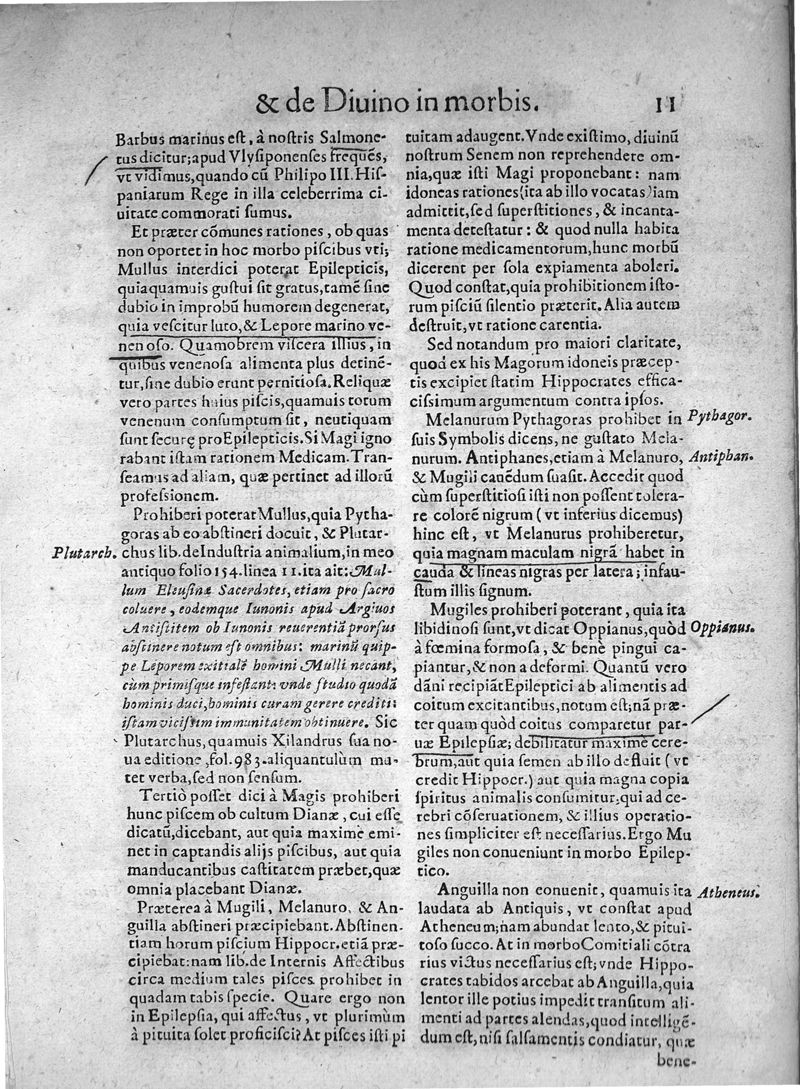 & de Diuino in morbis. 11
Barbus marinus est, à nostris Salmone-
tus dicitur; apud Vlysiponenses frequēs,
vt vidimus, quando cū Philipo III. His-
paniarum Rege in illa celeberrima ci-
uitate commorati sumus.
Et præter cōmunes rationes, ob quas
non oportet in hoc morbo piscibus vti;
Mullus interdici poterat Epilepticis,
quia quamuis gustui sit gratus, tamē sine
dubio in improbū humorem degenerat,
quia vescitur luto, & Lepore marino ve-
nenoso. Quamobrem viscera illius, in
quibus venenosa alimenta plus detinē-
tur, sine dubio erunt pernitiosa. Reliquæ
vero partes huius piscis, quamuis totum
venenum consumptum sit, neutiquam
sunt securę pro Epilepticis. Si Magi igno
rabant istam rationem Medicam. Tran-
seamus ad aliam, quæ pertinet ad illorū
professionem.
Prohiberi poterat Mullus, quia Pytha-
goras ab eo abstineri docuit, & Plutar-
Plutarch.
chus lib. de Industria animalium, in meo
antiquo folio 154. linea 11. ita ait: Mul-
lum Eleusinæ Sacerdotes, etiam pro sacro
coluere, eodemque Iunonis apud Argiuos
Antistitem ob Iunonis reuerentiā prorsus
abstinere notum est omnibus: marinū quip-
pe Leporem exitialē homini Mulli necant,
cùm primisque infestant: vnde studio quodā
hominis duci, hominis curam gerere crediti
istam vicissim immunitatem obtinuere. Sic
Plutarchus, quamuis Xilandrus sua no-
ua editione, fol. 983. aliquantùlum mu-
tet verba, sed non sensum.
Tertiò posset dici à Magis prohiberi
hunc piscem ob cultum Dianæ, cui esse
dicatū, dicebant, aut quia maximè emi-
net in captandis alijs piscibus, aut quia
manducantibus castitatem præbet, quæ
omnia placebant Dianæ.
Præterea à Mugili, Melanuro, & An-
guilla abstineri præcipiebant. Abstinen-
tiam horum piscium Hippocr. etiā præ-
cipiebat: nam lib. de Internis Affectibus
circa medium tales pisces prohibet in
quadam tabis specie. Quare ergo non
in Epilepsia, qui affectus, vt plurimùm
à pituita solet proficisci? At pisces isti pi
tuitam adaugent. Vnde existimo, diuinū
nostrum Senem non reprehendere om-
nia, quæ isti Magi proponebant: nam
idoneas rationes (ita ab illo vocatas) iam
admittit, sed superstitiones, & incanta-
menta detestatur: & quod nulla habita
ratione medicamentorum, hunc morbū
dicerent per sola expiamenta aboleri.
Quod constat, quia prohibitionem isto-
rum pisciū silentio præterit. Alia autem
destruit, vt ratione carentia.
Sed notandum pro maiori claritate,
quod ex his Magorum idoneis præcep-
tis excipiet statim Hippocrates effica-
cissimum argumentum contra ipsos.
Melanurum Pythagoras prohibet in
Pythagor.
suis Symbolis dicens, ne gustato Mela-
nurum. Antiphanes, etiam à Melanuro,
Antiphan.
& Mugili cauēdum suasit. Accedit quod
cùm superstitiosi isti non possent tolera-
re colorē nigrum (vt inferius dicemus)
hinc est, vt Melanurus prohiberetur,
quia magnam maculam nigrā habet in
cauda & lineas nigras per latera; infau-
stum illis signum.
Mugiles prohiberi poterant, quia ita
libidinosi sunt, vt dicat Oppianus, quòd
Oppianus.
à fœmina formosa, & benè pingui ca-
piantur, & non a deformi. Quantū vero
dāni recipiāt Epileptici ab alimentis ad
coitum excitantibus, notum est; nā præ-
ter quam quòd coitus comparetur par-
uæ Epilepsiæ; debilitatur maximè cere-
brum, aut quia semen ab illo defluit (vt
credit Hippocr.) aut quia magna copia
spiritus animalis consumitur, qui ad ce-
rebri cōseruationem, & illius operatio-
nes simpliciter est necessarius. Ergo Mu
giles non conueniunt in morbo Epilep-
tico.
Anguilla non eonuenit, quamuis ita
Atheneus.
laudata ab Antiquis, vt constat apud
Atheneum; nam abundat lento, & pitui-
toso succo. At in morbo Comitiali cōtra
rius victus necessarius est; vnde Hippo-
crates tabidos arcebat ab Anguilla, quia
lentor ille potius impedit transitum ali-
menti ad partes alendas, quod intelligē-
dum est, nisi salsamentis condiatur, quæ
bene-